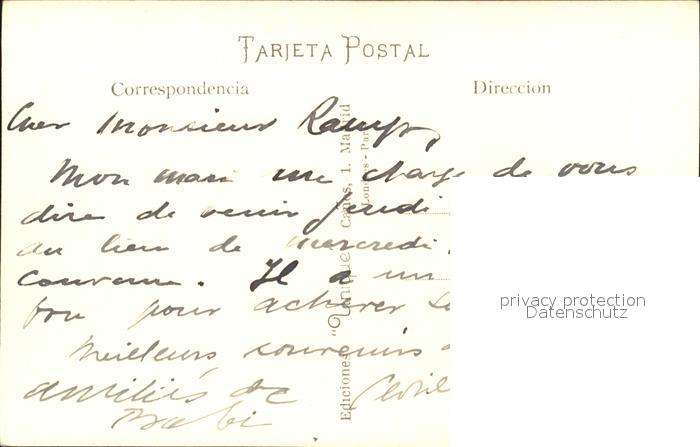 TARJETA POSTAL
Correspondencia
Direccion
Cher Monsieur
Mon mari me charge de vous
dire de venir jeudi
au lieu de mercredi
convenu. Il a un
fou pour achever
Meilleurs souvenirs
amitiés de
Ediciones "Unique" 1. Madrid
privacy protection
Datenschutz